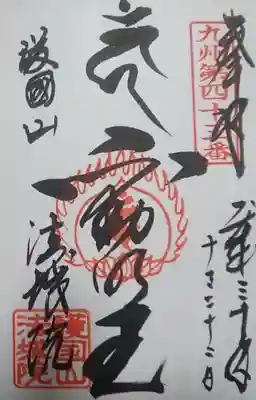 奉拝
九州第四十三番
平成三十年
不動明王
護國山
法城院